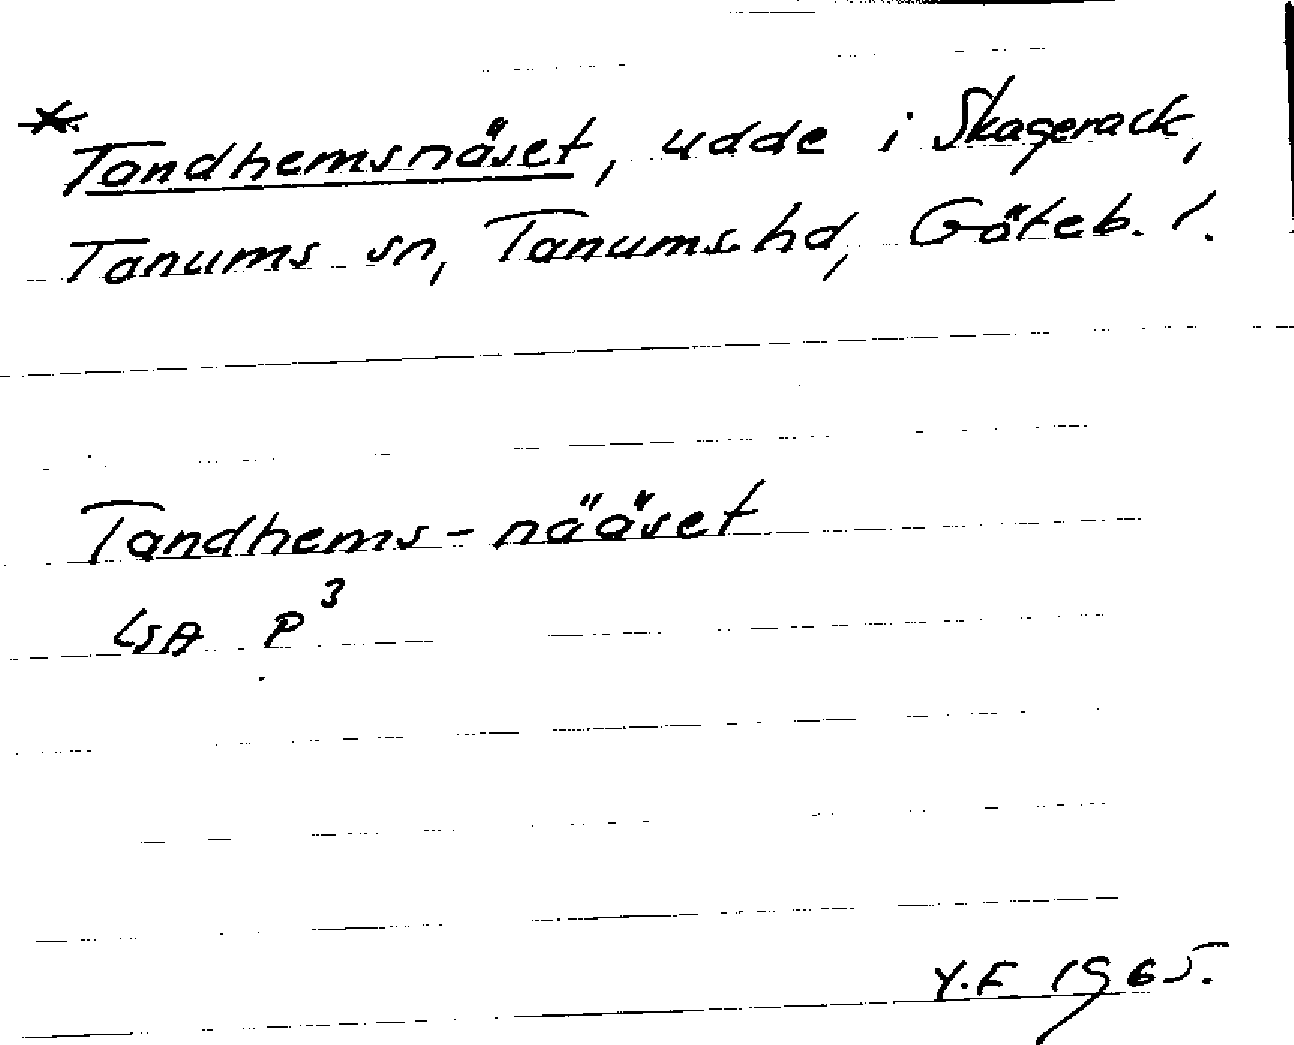 * Tandhemsnäset, udde i Skagerack,
Tanums sn, Tanums hd, Göteb. l.
Tandhems-nääset
LSA P³
Y.F 1965.